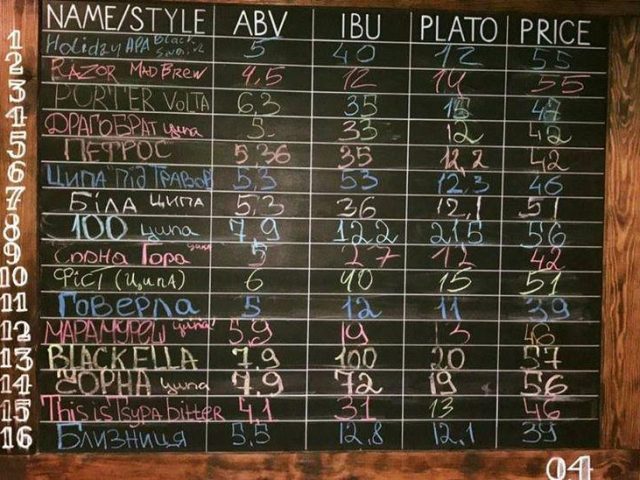 NAME/STYLE ABV IBU PLATO PRICE
1 Holidzy APA Black 5 40 12 55
2 RAZOR MAD BREW 4,5 12 14 55
3 PORTER VOLTA 6,3 35
4 ДРАГОБРАТ ципа 5. 33 12 42
5 ПЕТРОС 5.36 35 12,2 42
6 ЦИПА ПІД ТРАВОЮ 5.3 53 12.3 46
7 БІЛА ЦИПА 5.3 36 12,1 51
8 100 ципа 7.9 122 21.5 56
9 Гора ципа 5 27 12 42
10 ФІСТ (ЦИПА) 6 40 15 51
11 ГОВЕРЛА 5 12 11 39
12 МАРАМУРЕШ ципа 5.9 19 13 46
13 BLACKELLA 7.9 100 20 57
14 ЧОРНА ципа 7.9 72 19 56
15 This is Tsypa bitter 4.1 31 13 46
16 Близниця 5.5 12,8 12,1 39
04